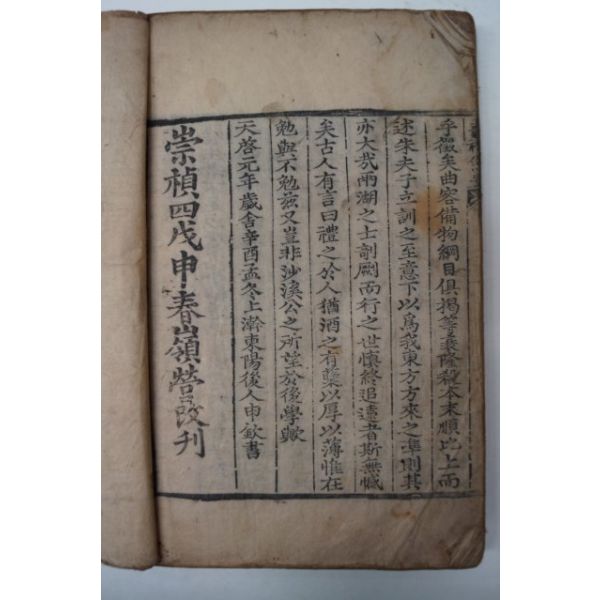 乎微矣曲容備物綱目俱揭等衰隆殺本末順比上而
述朱夫子立訓之至意下以爲我東方方來之準則其
亦大哉兩湖之士剞劂而行之世愼終追遠者斯無憾
矣古人有言曰禮之於人猶酒之有糱以厚以薄惟在
勉與不勉玆又豈非沙溪公之所望於後學歟
天啓元年歲舍辛酉孟冬上澣東陽後人申欽書
崇禎四戊申春嶺營改刊